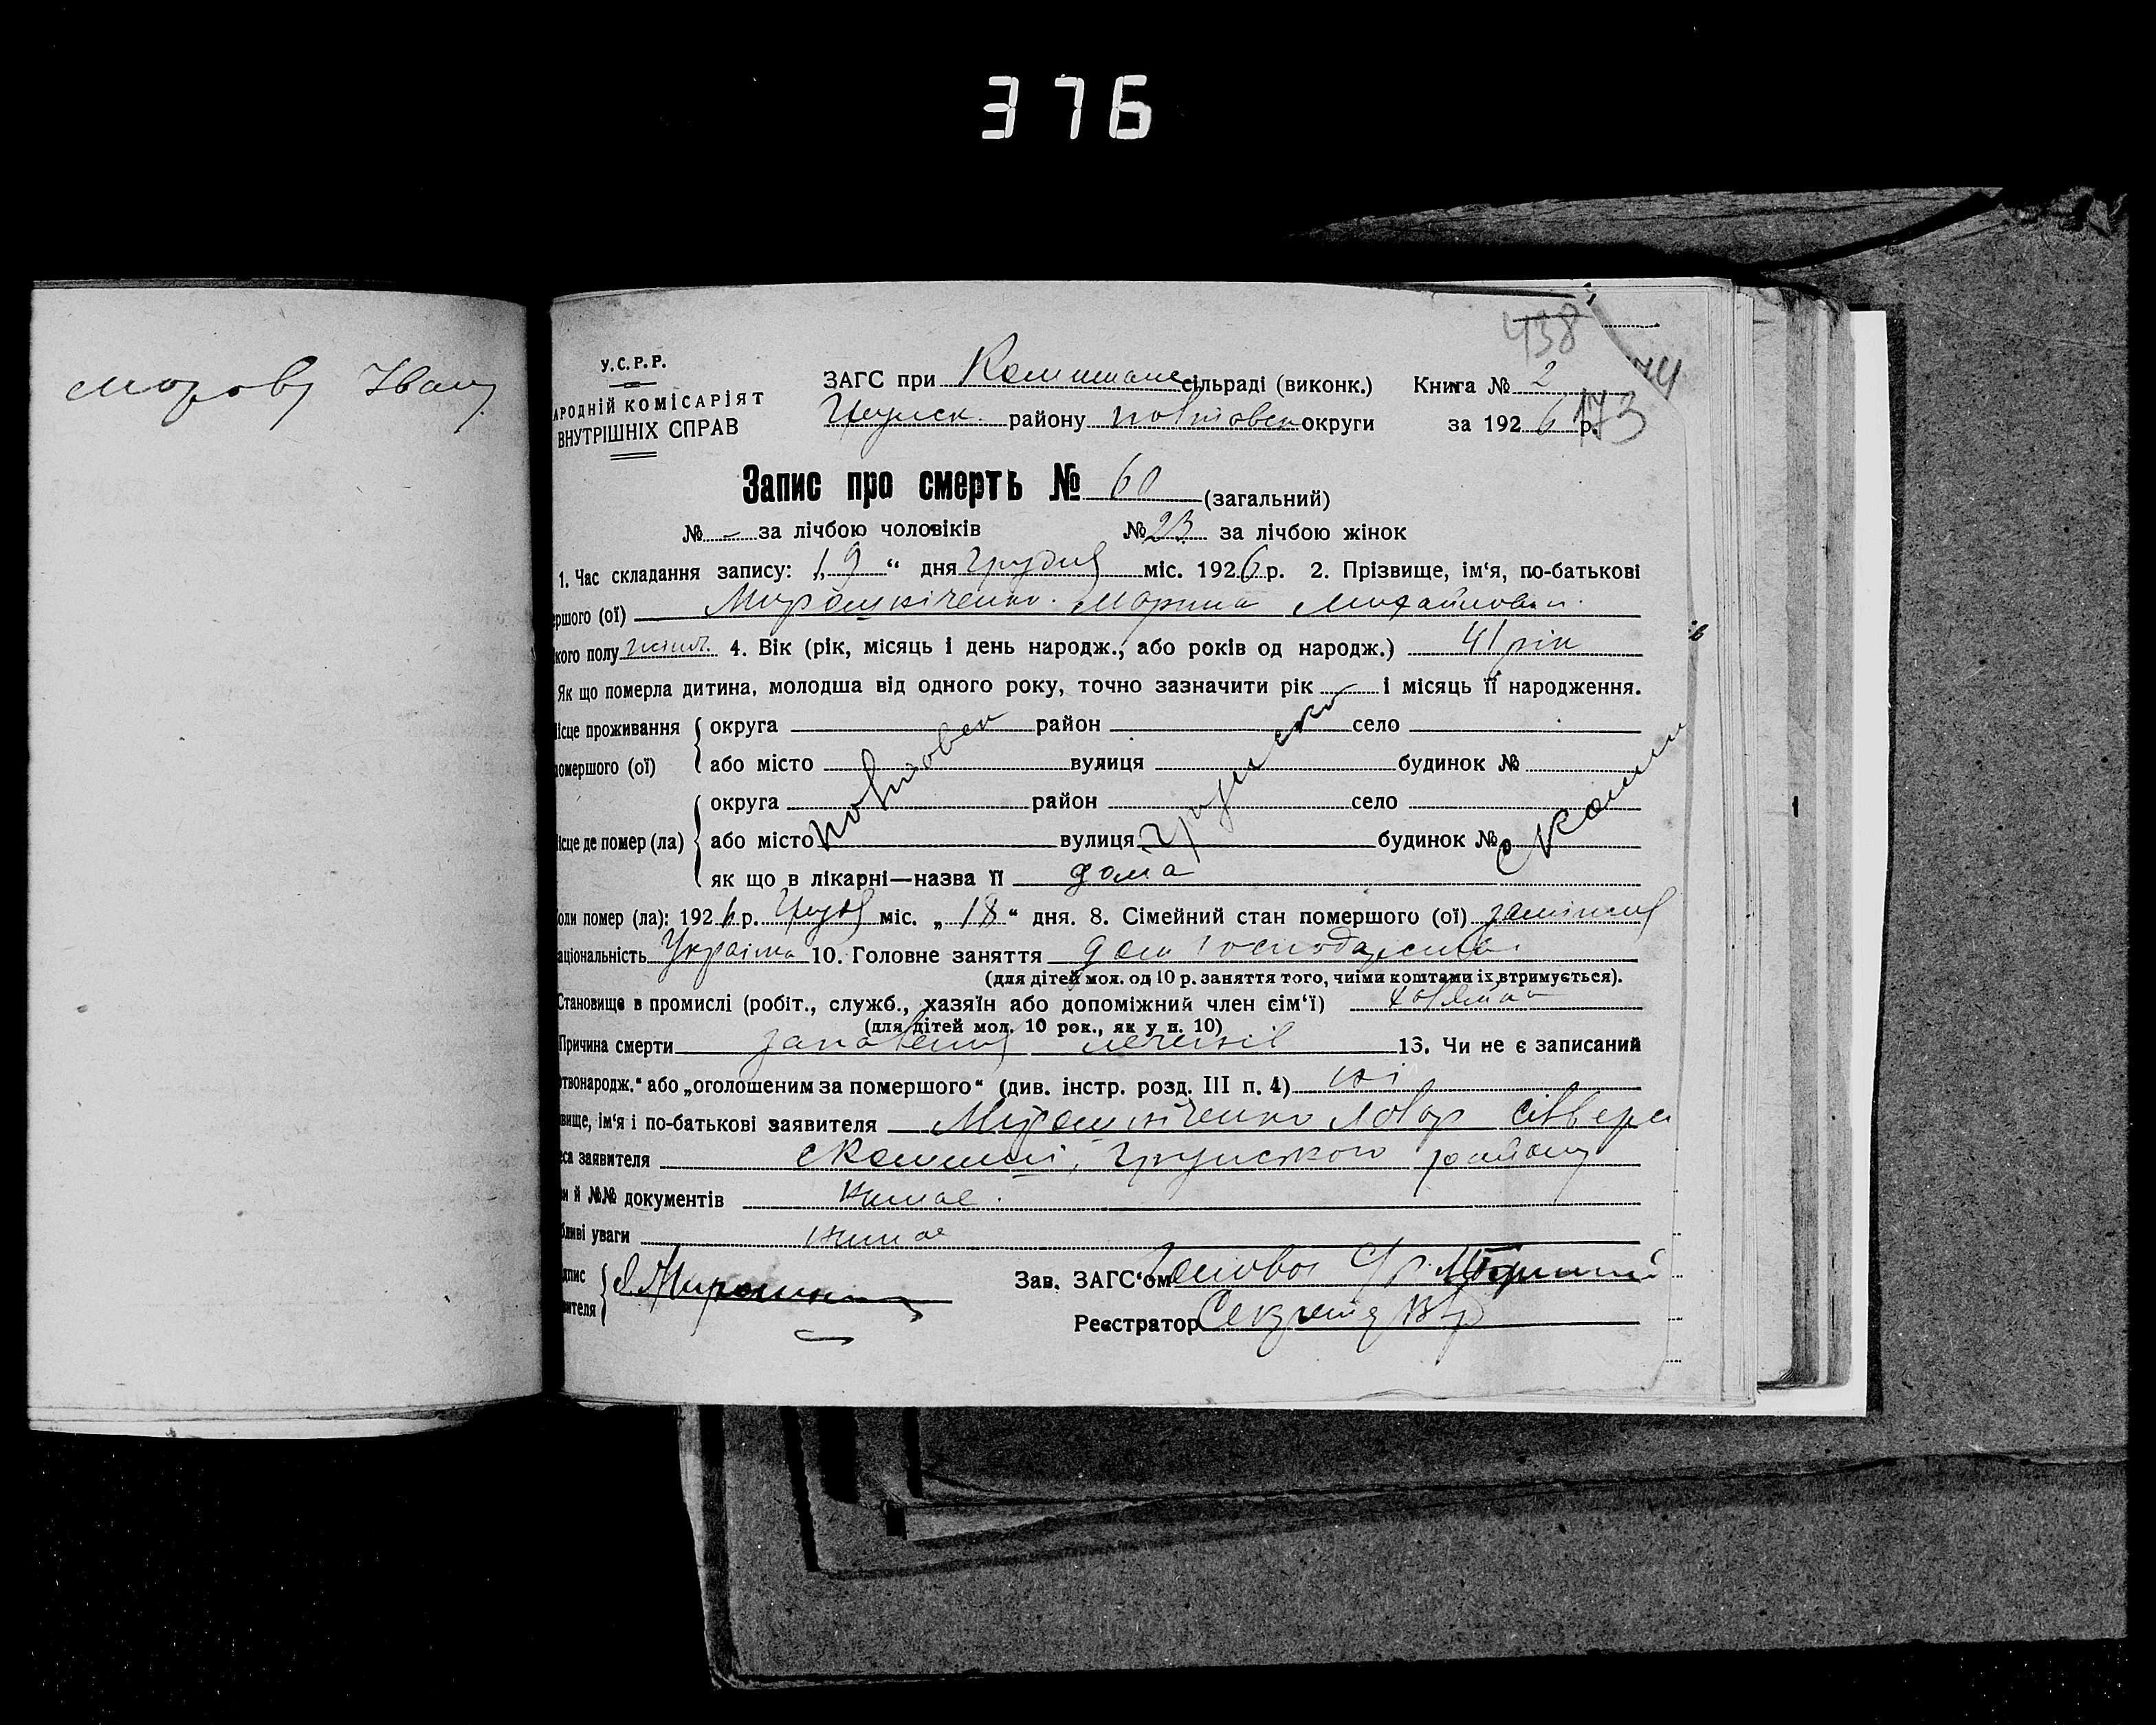 376
Морозу Івану
У.С.Р.Р.
АРОДНІЙ КОМІСАРІЯТ
ВНУТРІШНІХ СПРАВ
438
174
173
ЗАГС при Комишанс сільраді (виконк.) Книга № 2
Грунск. району Полтавск округи за 1926 р.
Запис про смерть № 60 (загальний)
№ - за лічбою чоловіків № 23 за лічбою жінок
1. Час складання запису: „19“ дня Грудня міс. 1926 р. 2. Прізвище, ім‘я, по-батькові
ершого (ої) Мирошніченко Марина Михайловн.
кого полу жіноч. 4. Вік (рік, місяць і день народж., або років од народж.) 41 рік
Як що померла дитина, молодша від одного року, точно зазначити рік і місяць її народження.
ісце проживання округа район село
помершого (ої) або місто вулиця будинок №
округа район село
ісце де помер (ла) або місто вулиця будинок №
Полтовск Грунский с Комиши
як що в лікарні—назва її дома
оли помер (ла): 1926 р. Грудя міс. „18“ дня. 8. Сімейний стан помершого (ої) замужня
аціональність Україна 10. Головне заняття дом господарство
(для дітей мол. од 10 р. заняття того, чиїми коштами їх втримується).
Становище в промислі (робіт., служб., хазяїн або допоміжний член сім‘ї) хозяйка
(для дітей мол. 10 рок., як у п. 10)
Причина смерти запаленя легенів 13. Чи не є записаний
ртвонародж.“ або „оголошеним за помершого“ (див. інстр. розд. III п. 4) ні
звище, ім‘я і по-батькові заявителя Мирошніченко
еса заявителя с Комиші, Грунського району
и й №№ документів нимае.
бливі уваги нимае
дпис
вителя
Зав. ЗАГС‘ом Голова С/р
Реєстратор Секретар